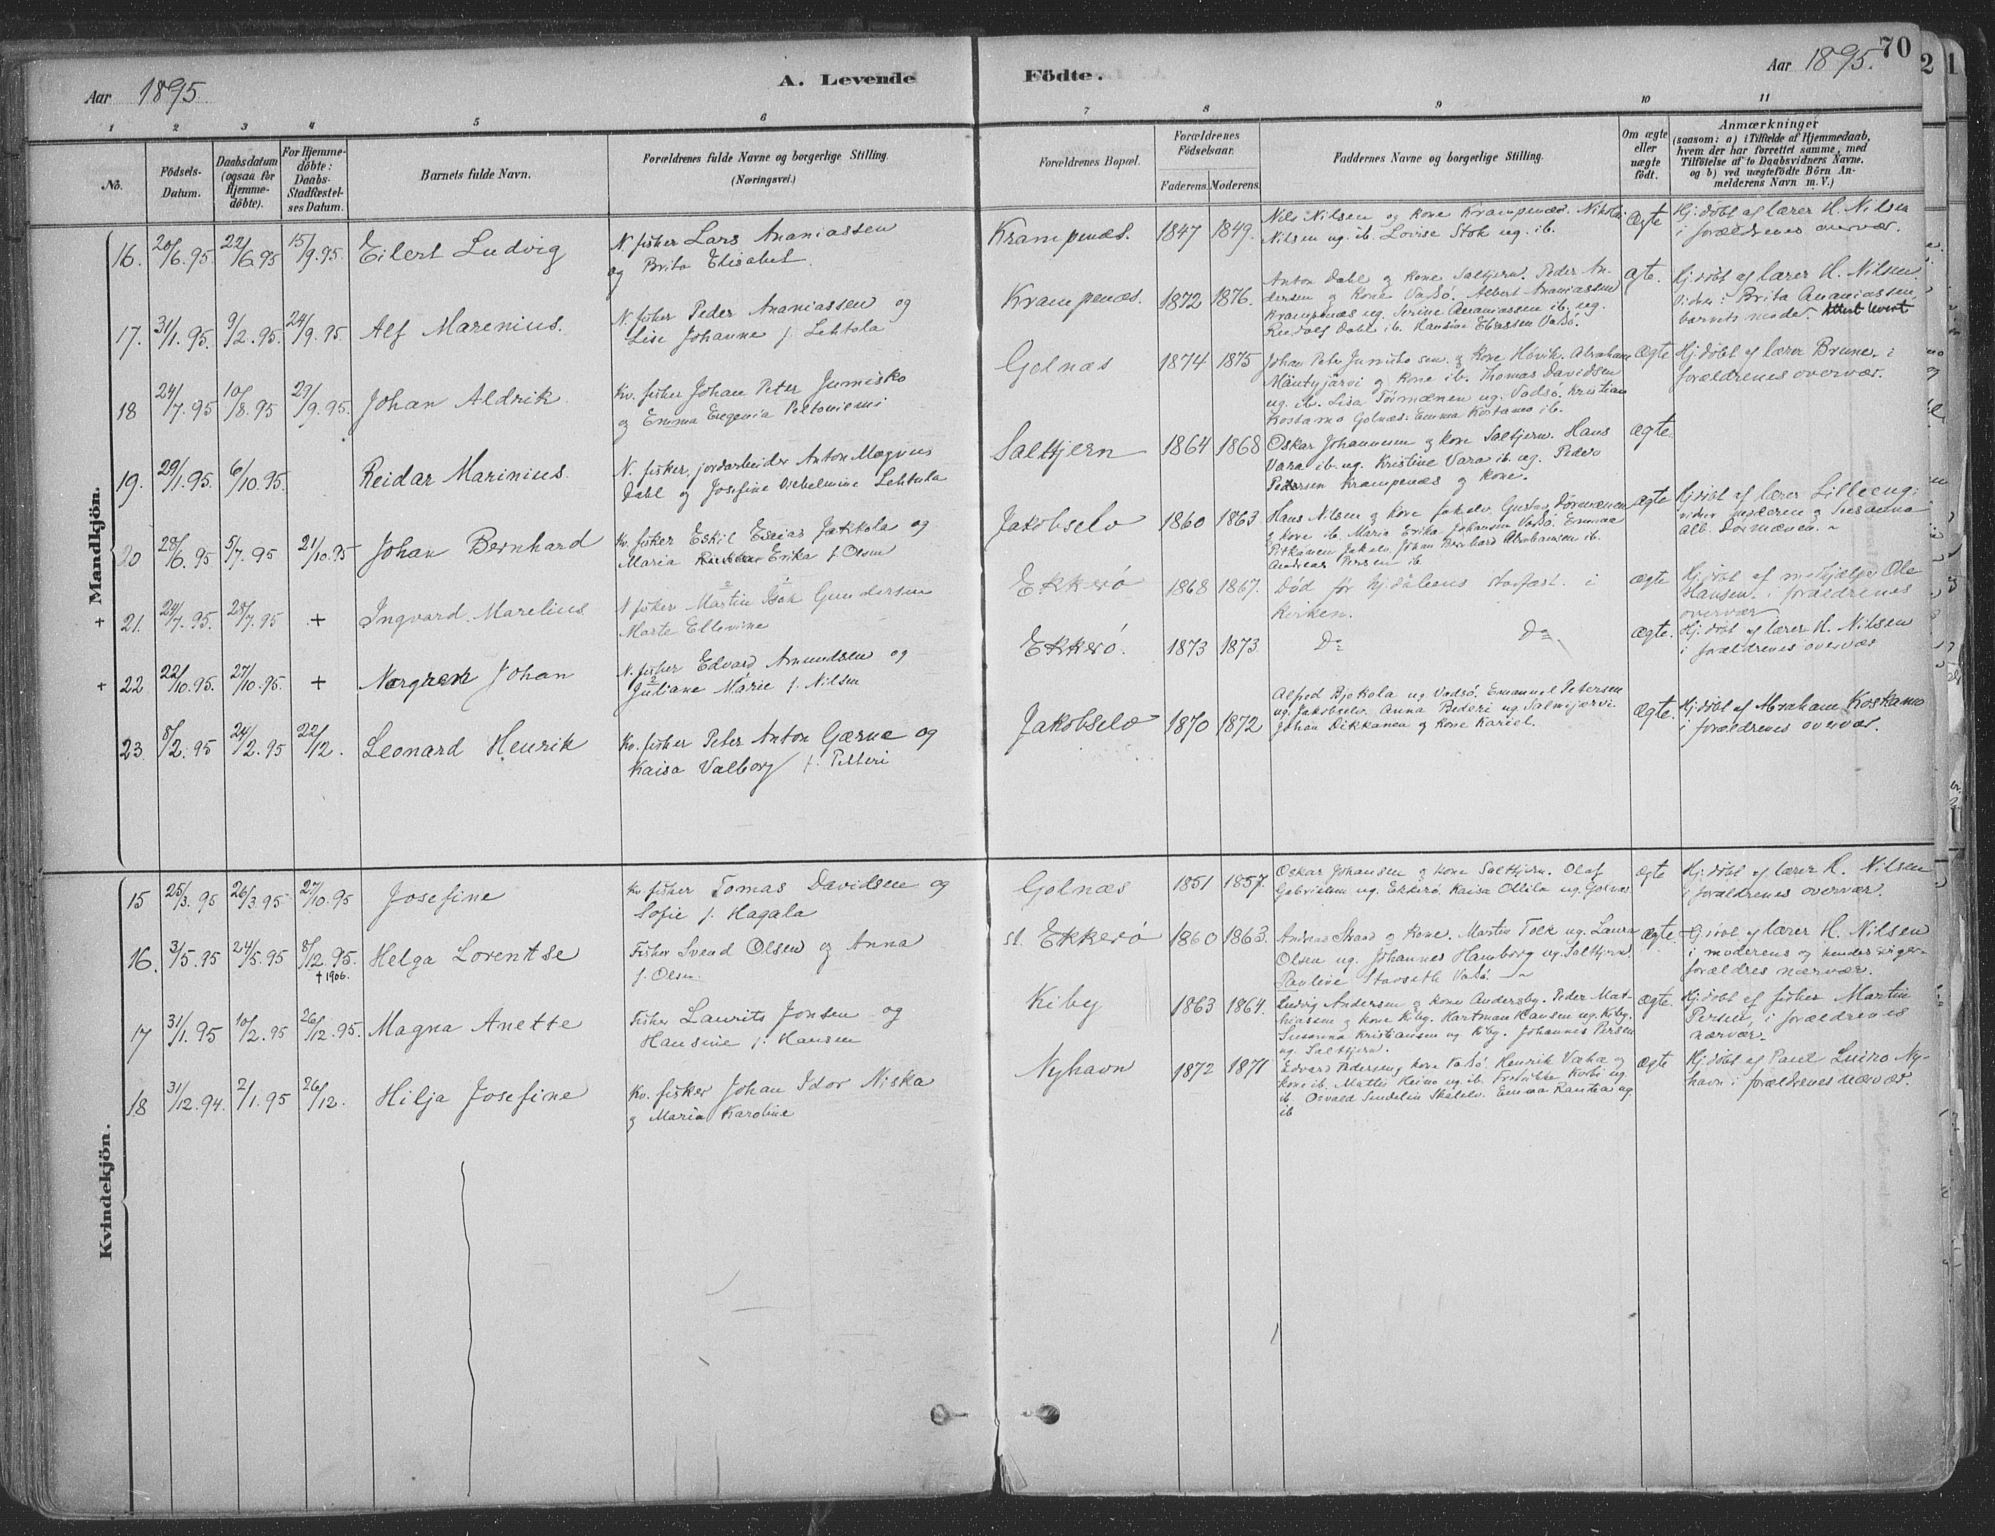 Aar 1895.
A. Levende
Födte.
Aar 1895.
70
1 2 3 4 5 6
7 8 9 10 11
No.
Födsels-
Datum.
Daabsdatum
(ogsaa for
Hjemme-
döbte).
For Hjemme-
döbte:
Daabs-
Stadfæstel-
ses Datum.
Barnets fulde Navn.
Forældrenes fulde Navne og borgerlige Stilling.
(Næringsvei.)
Forældrenes Bopæl.
Forældrenes
Födselsaar.
Faderens. Moderens.
Faddernes Navne og borgerlige Stilling.
Om ægte
eller
uægte
födt.
Anmærkninger
(saasom: a) i Tilfælde af Hjemmedaab,
hvem der har forrettet samme, med
Tilföielse af to Daabsvidners Navne.
og b) ved uægtefödte Börn An-
melderens Navn m. V.)
Mandkjön.
16. 20/6.95. 22/6 95 15/9.95. Eilert Ludvig
N. fisker Lars Ananiassen
og Brita Elisabet.
Krampenæs. 1847 1849.
Nils Nilsen og kone Krampenæs. Nikolai
Nilsen ug. ib. Lovise Stok ug. ib.
Ægte
Hj. döbt af lærer H. Nilsen
i forældrenes overvær.
17. 31/1.95. 9/2.95. 24/9.95. Alf Marenius.
N. fisker Peder Ananiassen og
Lise Johanne f. Lehtola
Krampenæs. 1872 1876.
Anton Dahl og kone Saltjern. Peder An-
dersen og kone Vadsö. Albert Ananiassen
Krampenæs ug. Serine Ananiassen ib. ug.
Rudolf Dahl ib. Hansine Eliassen Vadsö.
ægte.
Hj. döbt af lærer H. Nilsen
viden: Brita Ananiassen,
barnets moder.
18 24/7.95 10/8.95 29/9.95. Johan Aldrik.
Kv. fisker Johan Peter Jumisko
og Emma Eugenia Peltoniemi
Golnæs 1874 1875
Johan Peter Jumisko sen. og kone Hövik. Abraham
Mäntyjärvi og kone ib. Thomas Davidsen
ug. ib. Lisa Törmænen ug. Vadsö. Kristian
Kostamo Golnæs. Emma Kostamo ib.
Ægte
Hj. döbt af lærer Brune i
forældrenes overvær.
19. 29/1.95. 6/10.95. Reidar Marinius.
N. fisker, jordarbeider Anton Magnus
Dahl og Josefine Vilhelmine Lehtola
Saltjern 1864 1868
Oskar Johannesen og kone Saltjern. Hans
Vara ib. ug. Kristine Vara ib. ug. Peder
Pedersen Krampenæs og kone.
Ægte.
20 28/6.95 5/7.95 21/10.95 Johan Bernhard
Kv. fisker Eskil Esaias Jatkola og
Maria Erika f. Olsen
Jakobselv 1860 1863
Hans Nilsen og kone Jakelv. Gustav Dörmænen
og kone ib. Maria Erika Johansen Vadsö. Emma
Pitkänen Jakelv. Johan Bernhard Abrahamsen ib.
Andreas Persen ib
Ægte
Hj. döbt af lærer Lilleeng;
viden: faderen og Susanna
Alb. Dormænen.
+ 21. 24/7.95. 28/7.95 + Ingvard Marelius
N fisker Martin Isak Gundersen
Marte Ellevine
Ekkerö 1868 1867.
Död för hj.daabens stadfæst. i
kirken.
ægte
Hj. döbt af m.hjælper Ole
Hansen i forældrenes
overvær
+ 22 22/10.95. 27/10.95. + Johan
N. fisker Edvard Amundsen og
Juliane Marie f. Nilsen
Ekkerö. 1873 1873.
Do Do
ægte.
Hj. döbt af lærer H. Nilsen
i forældrenes overvær
23 8/2.95 24/2.95 22/12. Leonard Henrik
Kv. fisker Peter Anton Gærne og
Kaisa Valborg f. Petteri
Jakobselv 1870 1872
Alfred ug Vadsö. Emanuel Petersen
ug. Jakobselv. Anna Pederi ug Salmijærvi
Johan Dikkanen og kone Kariel.
Ægte.
Hj döbt af Abraham Koskamo
i forældrenes overvær.
Kvindekjön.
15 25/3.95 26/3.95 27/10.95 Josefine
Kv fisker Tomas Davidsen og
Sofie f. Hagala
Golnæs 1851 1857.
Oskar Johansen og kone Saltjern. Olaf
Gabrielsen ug. Ekkerö, Kaisa Ollila ug. Golnæs
ægte
Hj. döbt af lærer H. Nilsen
i forældrenes overvær.
16. 3/5.95 24/5.95 8/12.95. + 1906. Helga Lorentse
Fisker Svend Olsen og Anna
f. Olsen
st. Ekkerö 1860 1863.
Andreas Strand og kone. Martin Falk ug. Laura
Olsen ug. Johannes Hamborg ug. Saltjern.
Pauline Stavseth Vadsö
ægte.
Hj döbt af lærer H. Nilsen
i moderens og hendes sviger-
forældres nærvær.
17 31/1.95 10/2.95 26/12.95. Magna Anette
Fisker Laurits Jonsen og
Hansine f. Hansen
Kiby 1863 1864.
Ludvig Andersen og kone Andersby. Peder Mat-
hiasen og kone Kiby. Hartman Hansen ug. Kiby.
Susanna Kristiansen ug Kiby. Johannes Persen
ug. Saltjern.
ægte.
Hj. döbt af fisker Martin
Persen i forældrenes
nærvær.
18 31/12.94. 2/1.95 26/12. Hilja Josefine
Kv. fisker Johan Idor Niska
og Maria Karoline
Nyhavn 1872 1871
Edvard Pedersen og kone Vadsö, Henrik Væhæ og
kone ib. Mattis Keimo ug. ib. Fredrikke Korbi ug
ib. Osvald Sendelin Skalelv. Emma Rantha ug
ib
ægte
Hj döbt af Paul Luiro Ny-
havn i forældrenes nærvær.